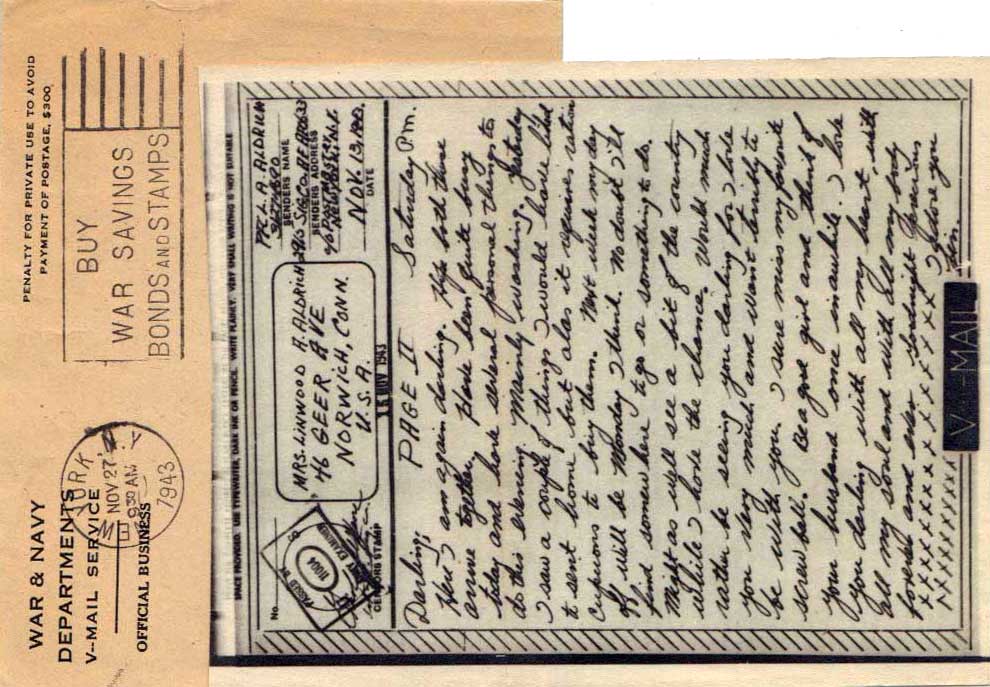 WAR & NAVY
DEPARTMENTS
V--MAIL SERVICE
OFFICIAL BUSINESS
YORK
NOV 27
9 30 AM
1943
PENALTY FOR PRIVATE USE TO AVOID
PAYMENT OF POSTAGE, $300
BUY
WAR SAVINGS
BONDS AND STAMPS
No.
PASSED BY
ARMY EXAMINER
CENSOR'S STAMP
MRS. LINWOOD A. ALDRICH
46 GEER AVE
NORWICH, CONN.
U.S.A.
15 NOV 1943
PFC L. A. ALDRICH
SENDERS NAME
SENDERS ADDRESS
NOV. 13, 1943
DATE
PAGE II Saturday Pm.
Darling;
Here I am again darling. Hope both these
arrive together. Have been quite busy
today and have several personal things to
do this evening. Mainly washing. Yesterday
I saw a couple of things I would have liked
to sent home but alas it requires ration
cupons to buy them. Next week my day
off will be Monday I think. No doubt I'll
find somewhere to go or something to do.
Might as well see a bit of the country
while I have the chance. Would much
rather be seeing you darling for I love
you very much and want terribly to
be with you. I sure miss my favorite
screw ball. Be a good girl and think of
your husband once in awhile. I love
you darling with all my heart, with
all my soul and with all my body
forever and ever. Goodnight Precious
I adore you
Lin.
V--MAIL